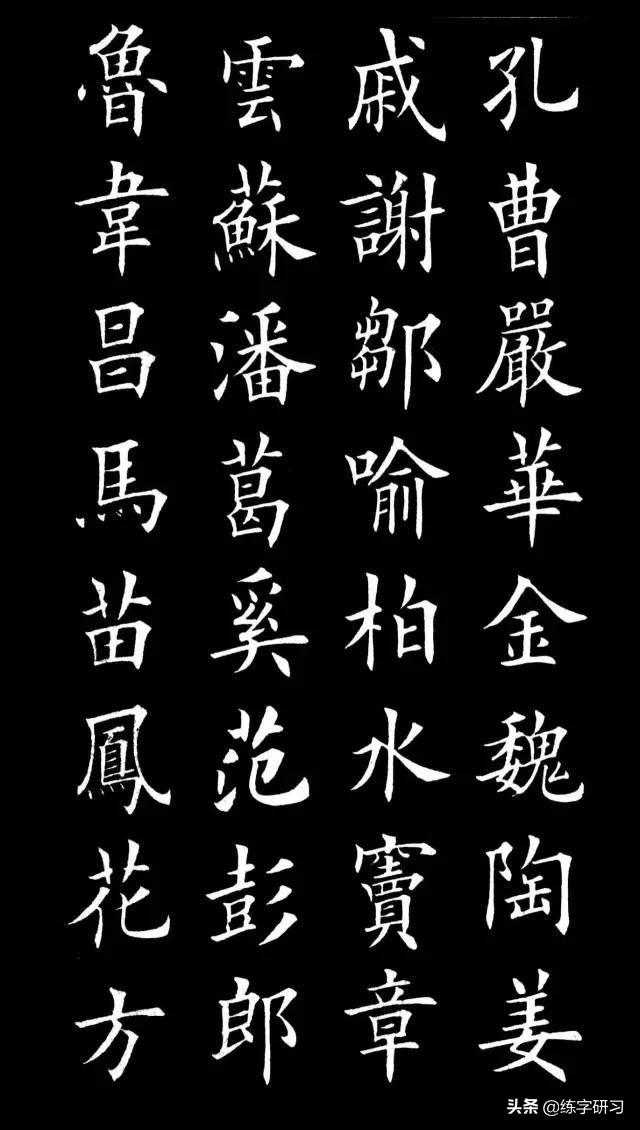 孔曹嚴華金魏陶姜
戚謝鄒喻柏水竇章
雲蘇潘葛奚范彭郎
魯韋昌馬苗鳳花方
头条 @练字研习